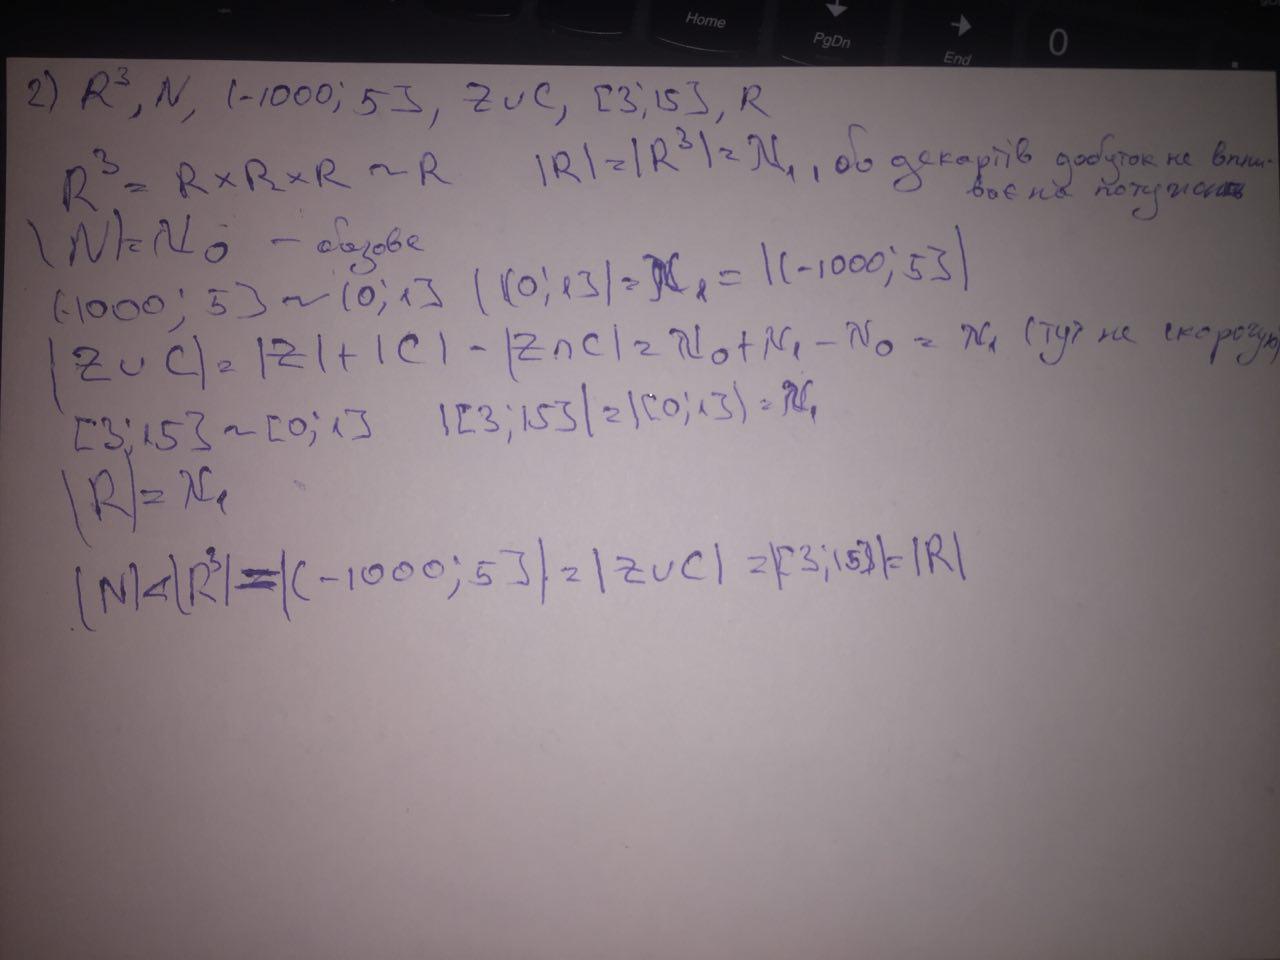 Home
PgDn
End
0
2) R³, N, (-1000; 5], Z∪C, [3; 15], R
R³ = R×R×R ~ R |R| = |R³| = ℵ₁, бо декартів добуток не впли-
ває на потужність
|N| = ℵ₀ - базове
(-1000; 5] ~ (0; 1] |(0; 1]| = ℵ₁ = |(-1000; 5]|
|Z∪C| = |Z| + |C| - |Z∩C| = ℵ₀ + ℵ₁ - ℵ₀ = ℵ₁ (тут не скорочую)
[3; 15] ~ [0; 1] |[3; 15]| = |[0; 1]| = ℵ₁
|R| = ℵ₁
|N| < |R³| = |(-1000; 5]| = |Z∪C| = |[3; 15]| = |R|